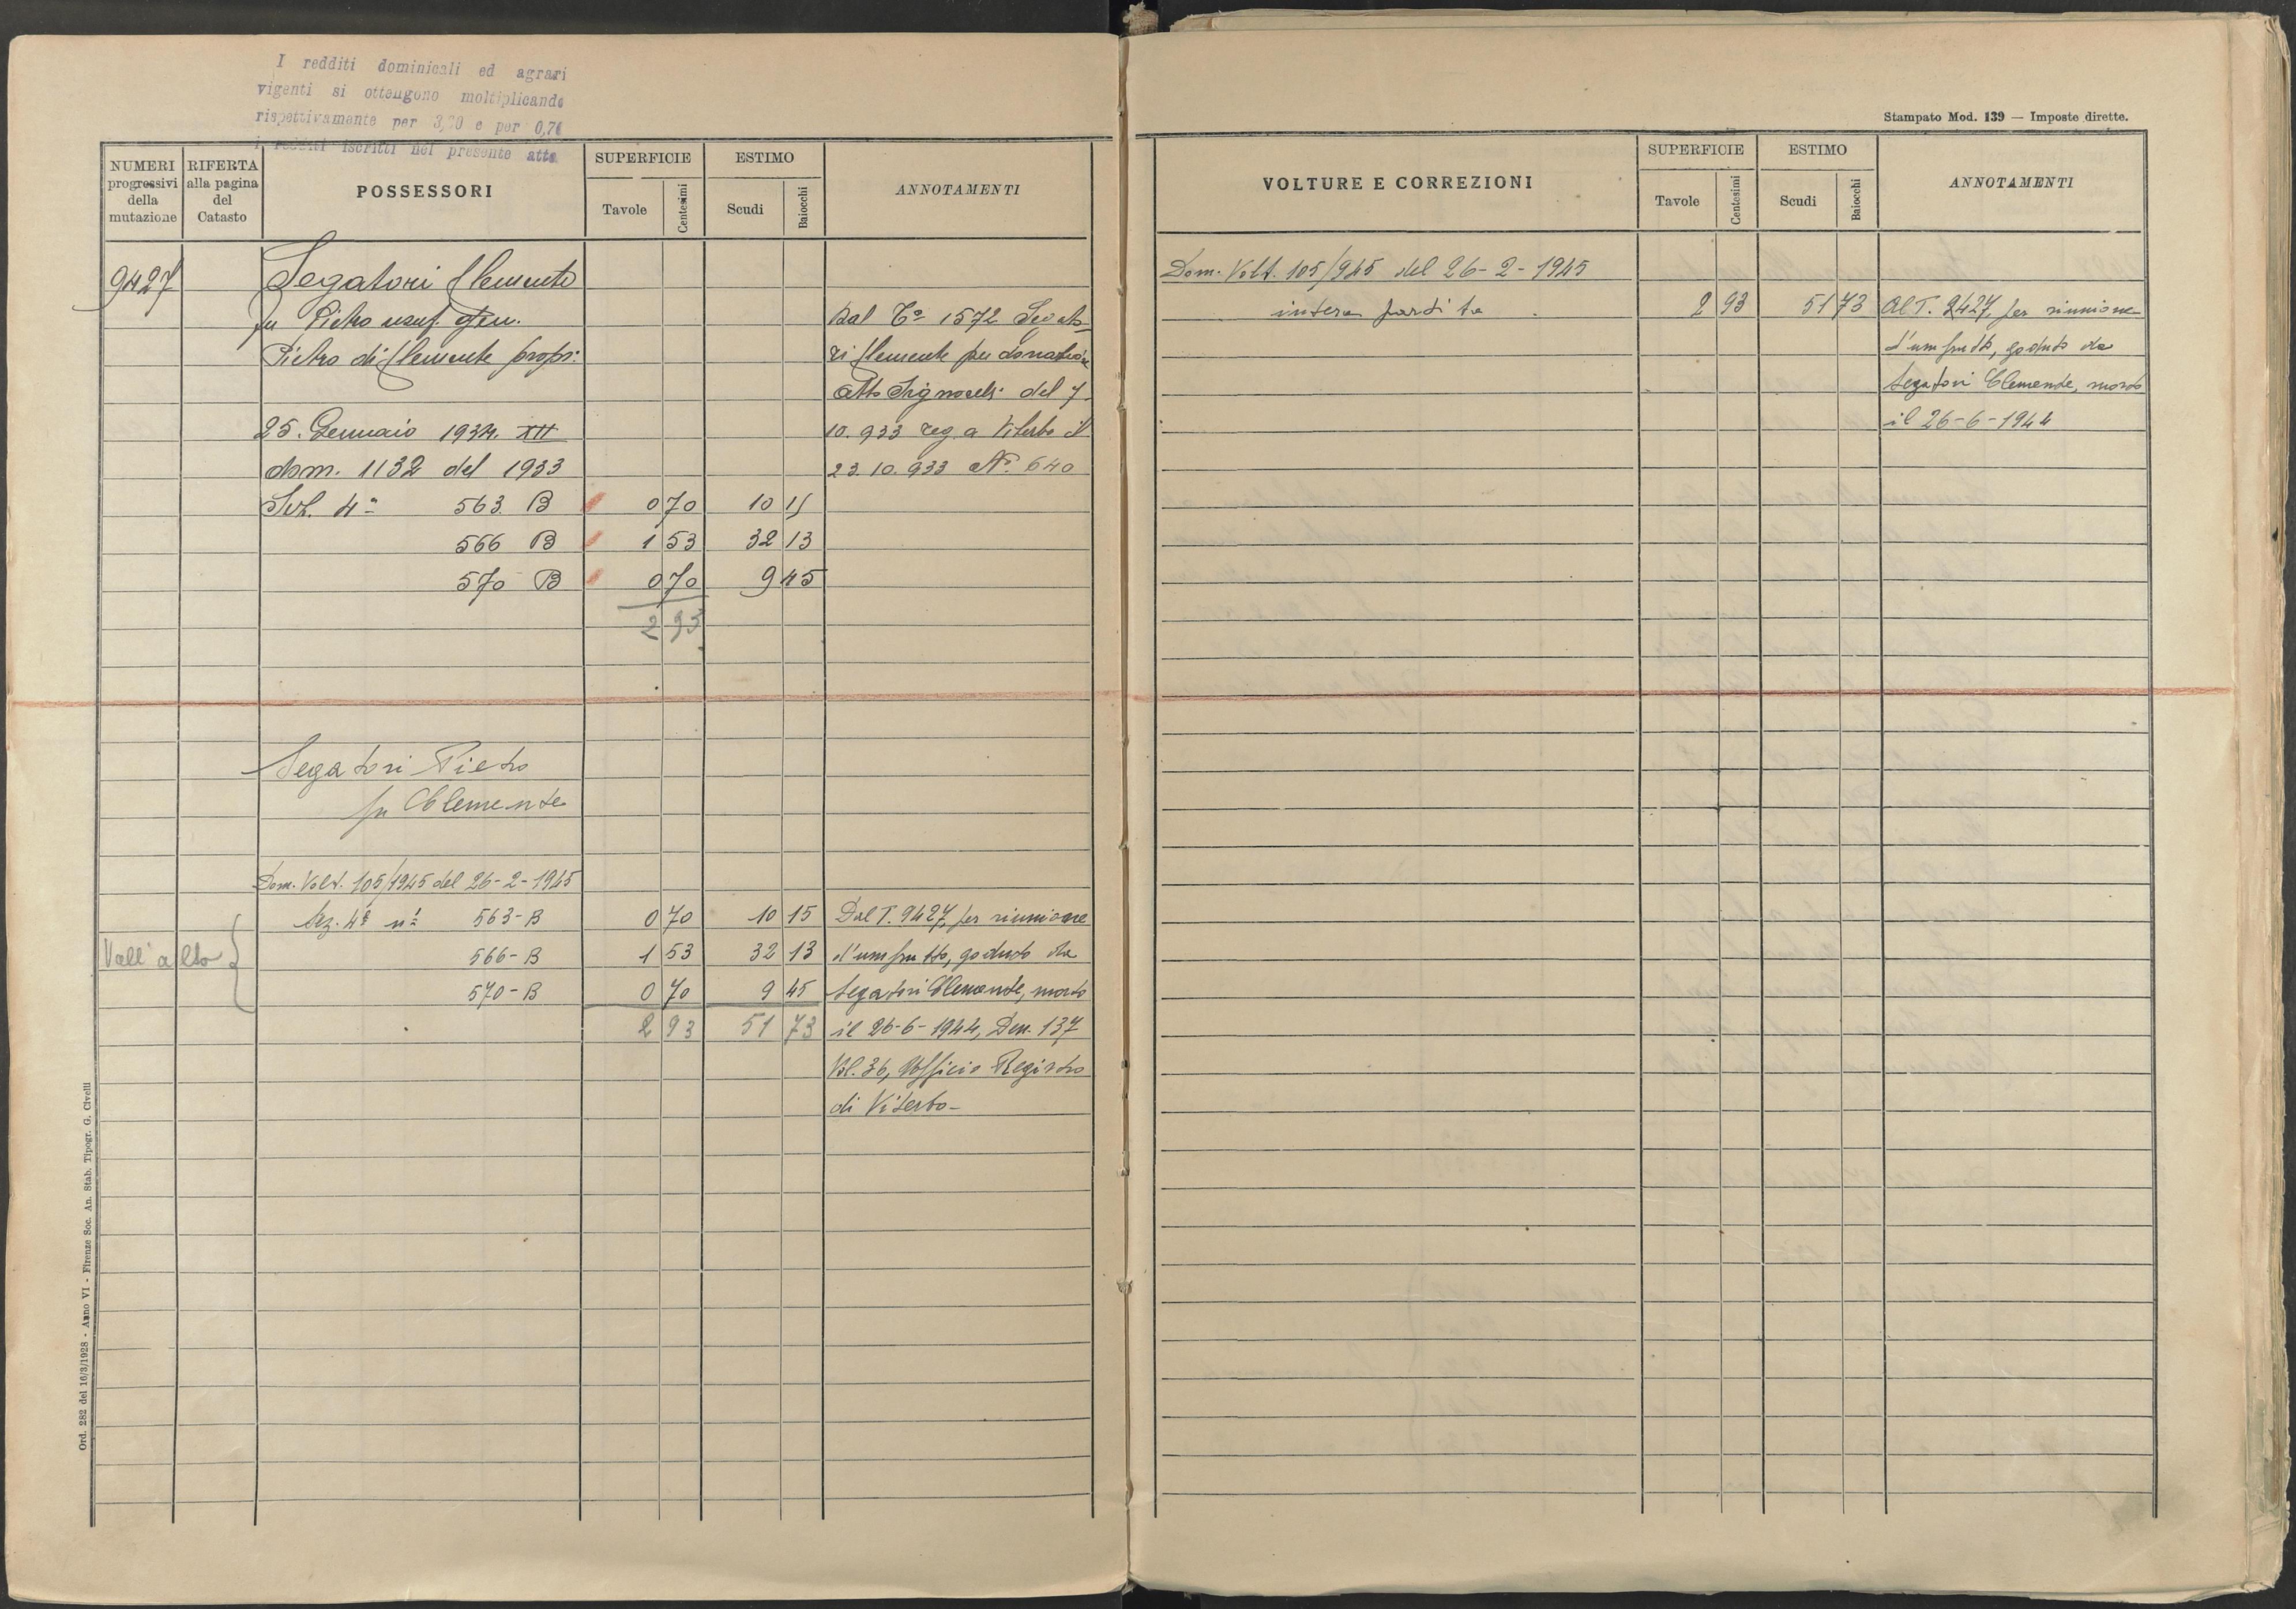 I redditi dominicali ed agrari
vigenti si ottengono moltiplicando
rispettivamente per 3,20 e per 0,70
i redditi iscritti nel presente atto
NUMERI progressivi della mutazione
RIFERTA alla pagina del Catasto
POSSESSORI
SUPERFICIE
Tavole
Centesimi
ESTIMO
Scudi
Baiocchi
ANNOTAMENTI
9427
Segatori Clemente
fu Pietro usuf. gen.
Pietro di Clemente propr:
25. Gennaio 1934. XII
dom. 1132 del 1933
563 B 0 70 10 15
566 B 1 53 32 13
570 B 0 70 9 45
2 93
Dal 1572 Segato
ri Clemente per donazione
Atto Signorelli del 7.
10. 933 reg. a Viterbo il
23. 10. 933 N° 640
Segatori Pietro
fu Clemente
Dom. Volt. 105/1945 del 26-2-1945
Sez. 4ª nⁱ 563-B 0 70 10 15
566-B 1 53 32 13
570-B 0 70 9 45
2 93 51 73
Vall'alta
Dal T. 9427, per riunione
d'usufrutto, goduto da
Segatori Clemente, morto
il 26-6-1944, Den. 137
Vol. 36, Ufficio Registro
di Viterbo-
Ord. 282 del 16/3/1928 - Anno VI - Firenze Soc. An. Stab. Tipogr. G. Civelli
Stampato Mod. 139 — Imposte dirette.
VOLTURE E CORREZIONI
SUPERFICIE
Tavole
Centesimi
ESTIMO
Scudi
Baiocchi
ANNOTAMENTI
Dom. Volt. 105/945 del 26-2-1945
intera partita 2 93 51 73
Al T. 9427, per riunione
d'usufrutto, goduto da
Segatori Clemente, morto
il 26-6-1944